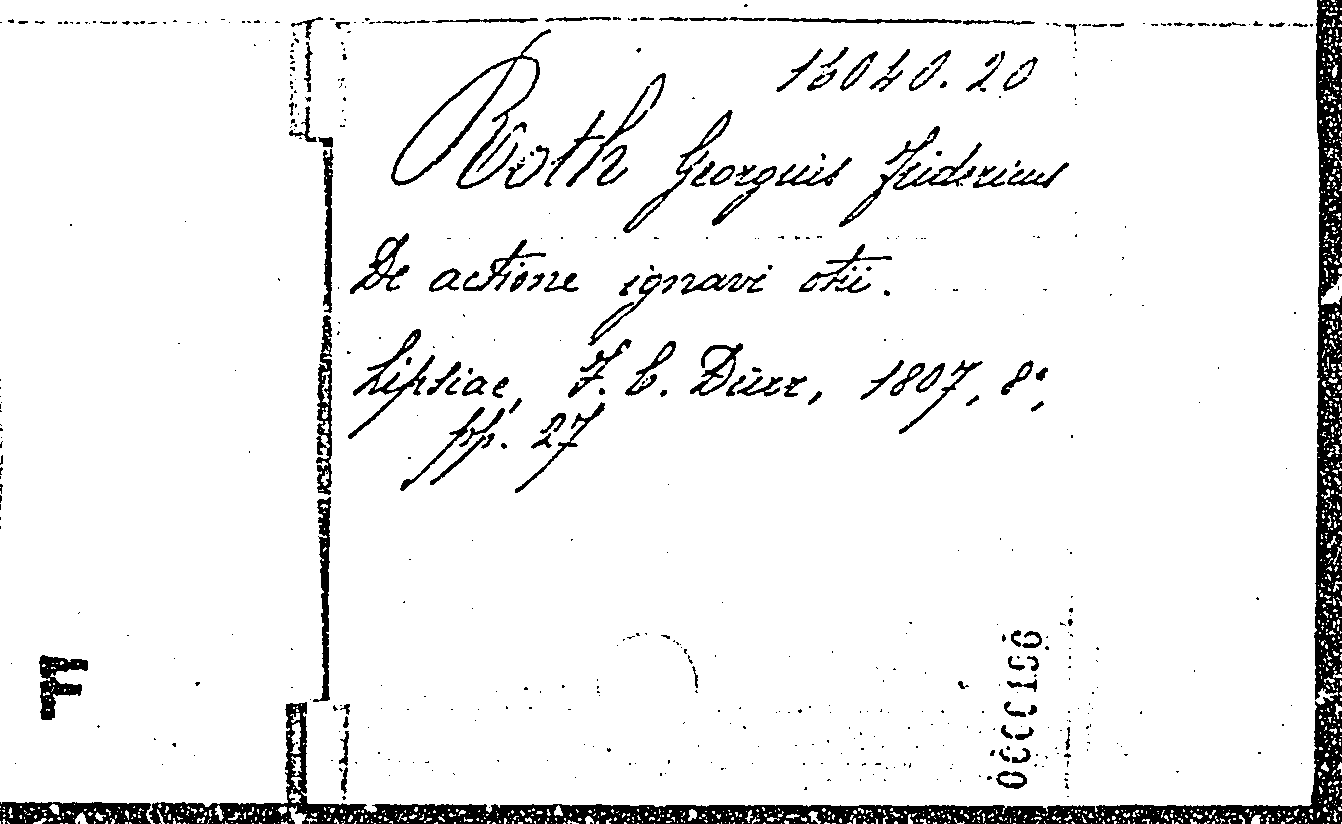 13040.20
Roth Georguis Fridericus
De actione ignavi otii.
Lipsiae, F. C. Dürr, 1807, 8°,
pp. 27
F
0000196